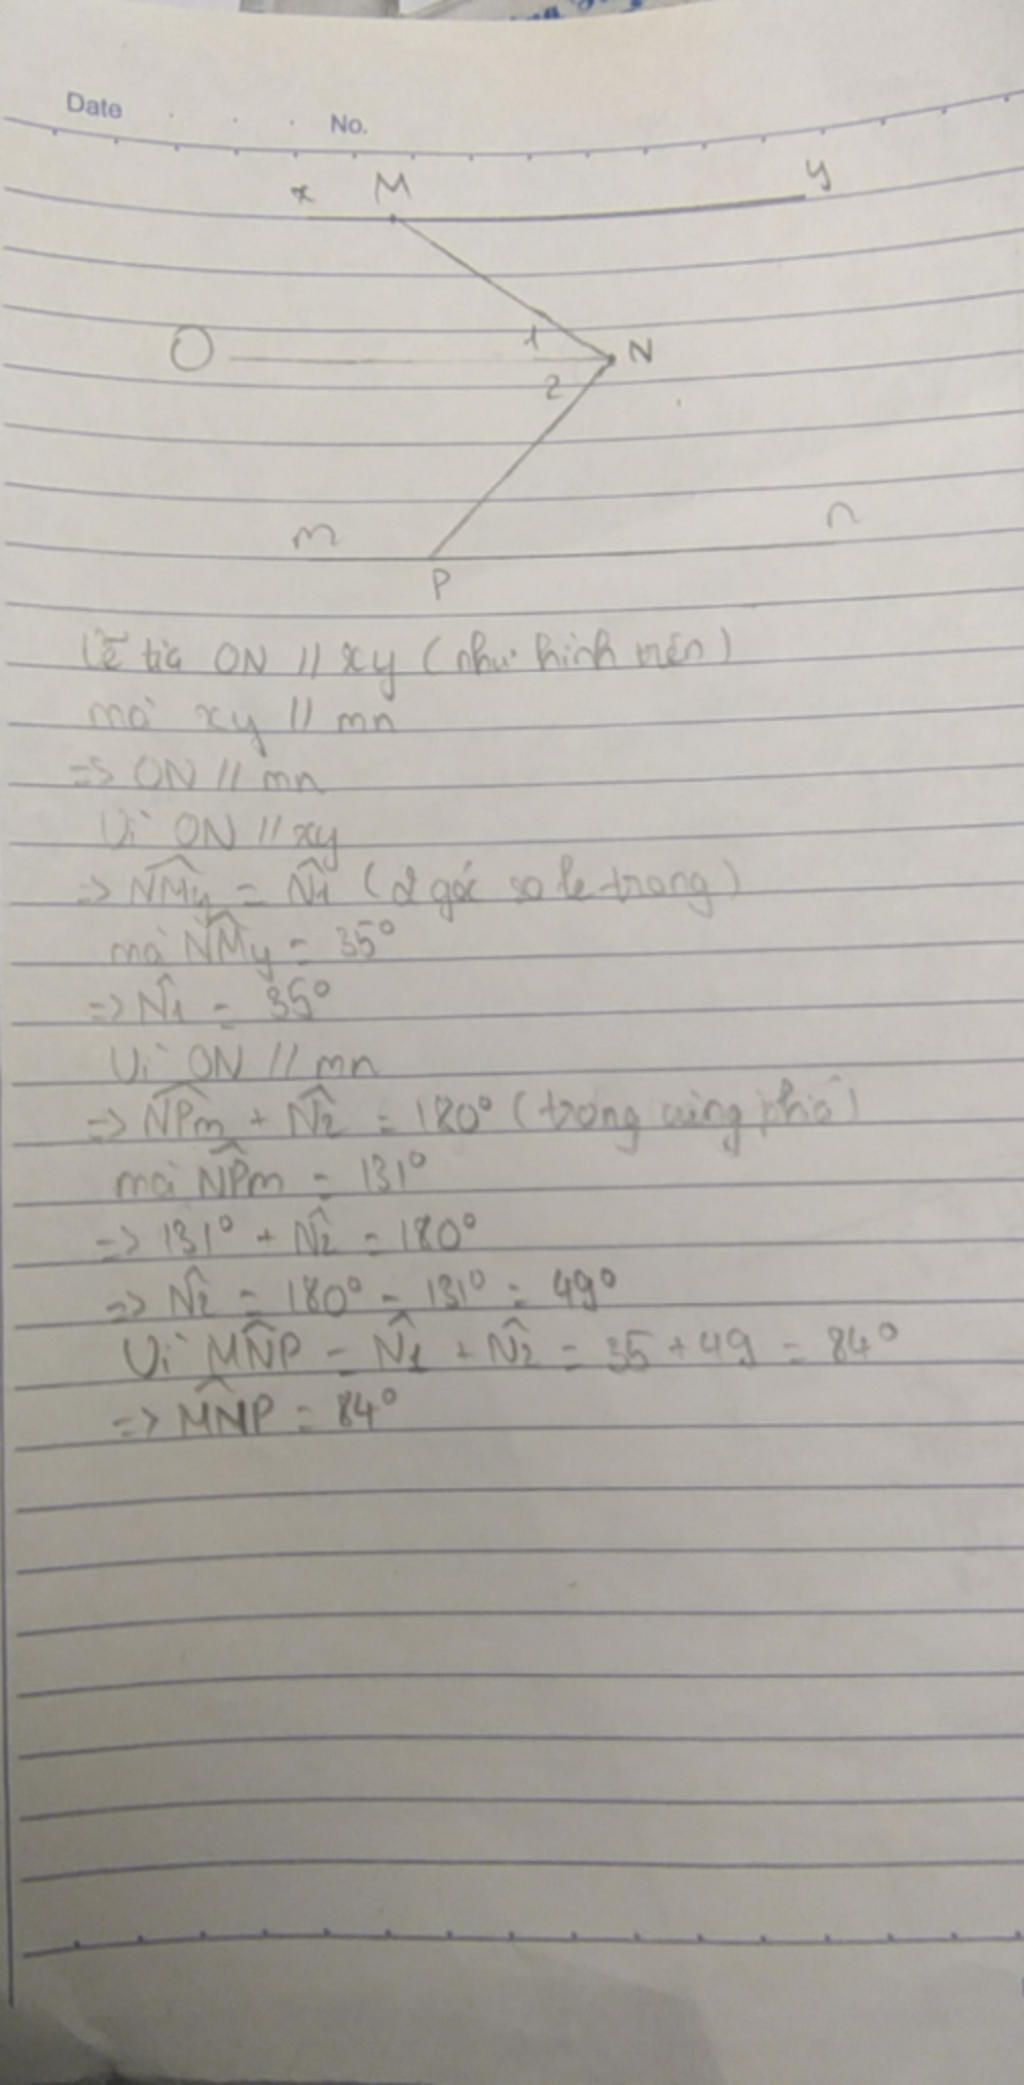 Date No.
x M y
O 1 N
2
m n
P
Vẽ tia ON // xy (như hình trên)
mà xy // mn
=> ON // mn
Vì ON // xy
=> NMy = N1 (2 góc so le trong)
mà NMy = 35°
=> N1 = 35°
Vì ON // mn
=> NPm + N2 = 180° (trong cùng phía)
mà NPm = 131°
=> 131° + N2 = 180°
=> N2 = 180° - 131° = 49°
Vì MNP = N1 + N2 = 35 + 49 = 84°
=> MNP = 84°